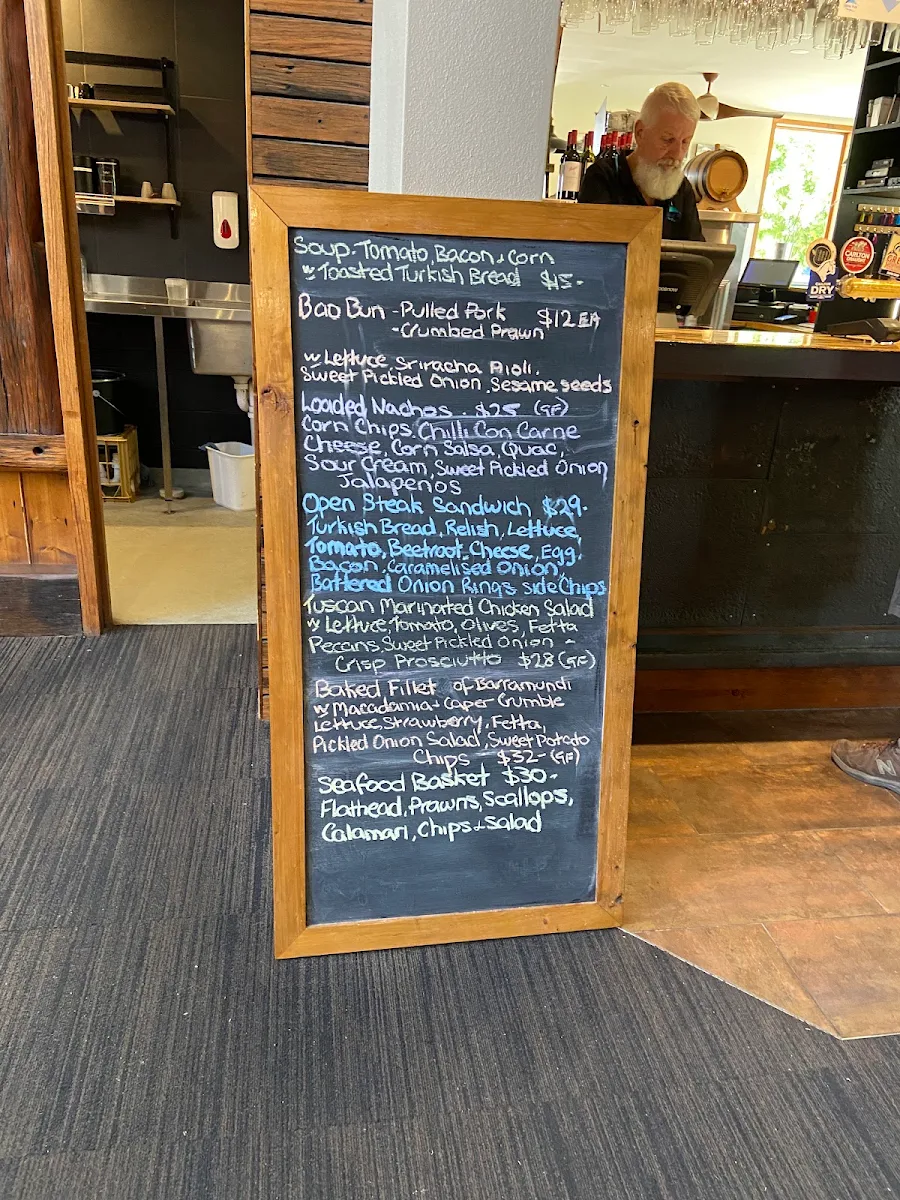 Soup. Tomato, Bacon + Corn
w Toasted Turkish Bread $15-
Bao Bun - Pulled Pork $12 EA
- Crumbed Prawn
w Lettuce, Sriracha Aioli,
Sweet Pickled Onion, Sesame seeds
Loaded Nachos. $25 (GF)
Corn Chips, Chilli Con Carne
Cheese, Corn Salsa, Guac,
Sour Cream, Sweet Pickled Onion
Jalapenos
Open Steak Sandwich $29-
Turkish Bread, Relish, Lettuce,
Tomato, Beetroot, Cheese, Egg,
Bacon, Caramelised Onion,
Battered Onion Rings, side Chips
Tuscan Marinated Chicken Salad
w Lettuce, Tomato, Olives, Fetta
Pecans, Sweet Pickled Onion ~
Crisp Prosciutto $28 (GF)
Baked Fillet of Barramundi
w Macadamia + Caper Crumble
Lettuce, Strawberry, Fetta,
Pickled Onion Salad, Sweet Potato
Chips $32- (GF)
Seafood Basket $30-
Flathead, Prawns, Scallops,
Calamari, Chips + Salad
DRY
CARLTON